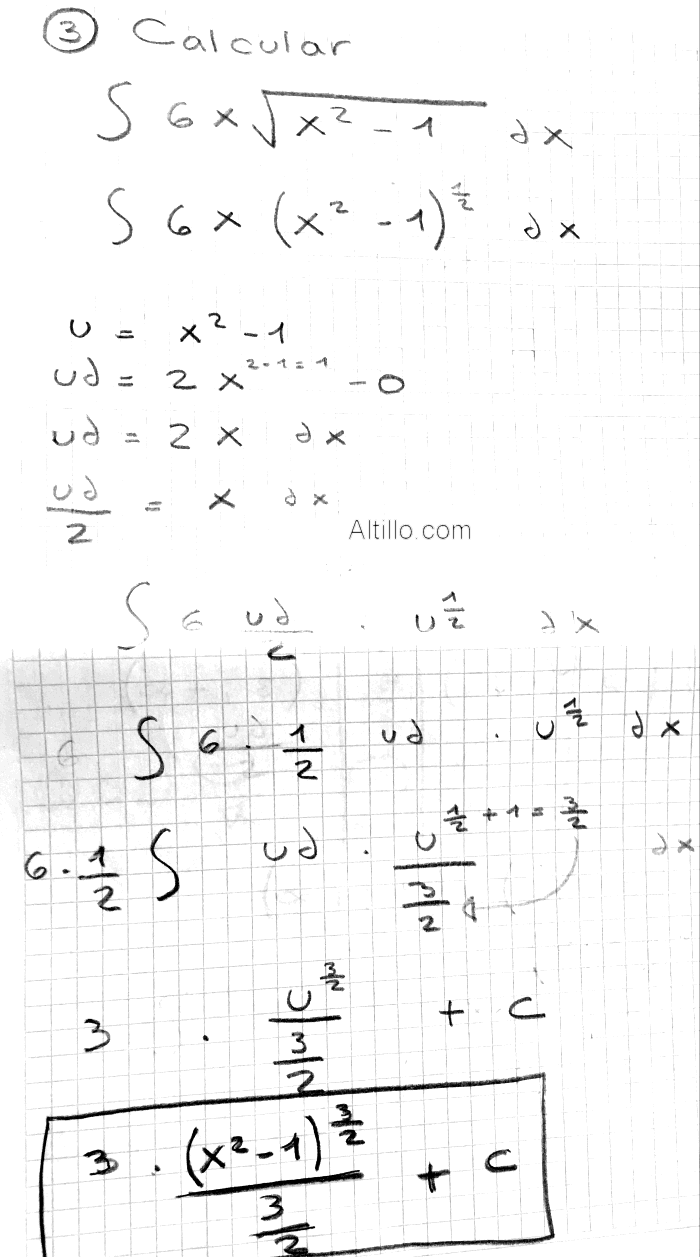 ③ Calcular
∫ 6x√(x² - 1) ∂x
∫ 6x (x² - 1)^(1/2) ∂x
u = x² - 1
u∂ = 2x^(2-1=1) - 0
u∂ = 2x ∂x
u∂/2 = x ∂x
Altillo.com
∫ 6 u∂/2 · u^(1/2) ∂x
∫ 6 · 1/2 u∂ · u^(1/2) ∂x
6 · 1/2 ∫ u∂ · u^(1/2 + 1 = 3/2)/(3/2) ∂x
3 · u^(3/2)/(3/2) + C
3 · (x² - 1)^(3/2)/(3/2) + C